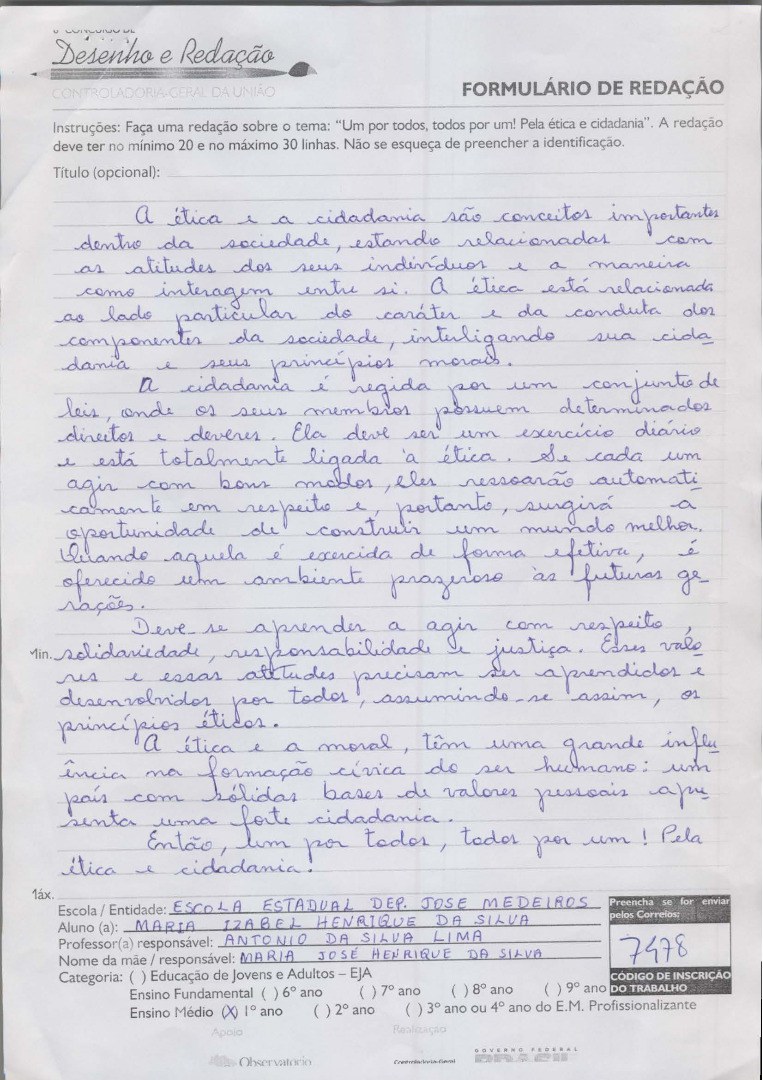 6º CONCURSO DE
Desenho e Redação
CONTROLADORIA-GERAL DA UNIÃO
FORMULÁRIO DE REDAÇÃO
Instruções: Faça uma redação sobre o tema: “Um por todos, todos por um! Pela ética e cidadania”. A redação
deve ter no mínimo 20 e no máximo 30 linhas. Não se esqueça de preencher a identificação.
Título (opcional):
A ética e a cidadania são conceitos importantes
dentro da sociedade, estando relacionadas com
as atitudes dos seus indivíduos e a maneira
como interagem entre si. A ética está relacionada
ao lado particular do caráter e da conduta dos
componentes da sociedade, interligando sua cida_
dania e seus princípios morais.
A cidadania é regida por um conjunto de
leis, onde os seus membros possuem determinados
direitos e deveres. Ela deve ser um exercício diário
e está totalmente ligada à ética. Se cada um
agir com bons modos, eles ressoarão automati_
camente em respeito e, portanto, surgirá a
oportunidade de construir um mundo melhor.
Quando aquela é exercida de forma efetiva, é
oferecido um ambiente prazeroso às futuras ge_
rações.
Deve-se aprender a agir com respeito,
Min. solidariedade, responsabilidade e justiça. Esses valo_
res e essas atitudes precisam ser aprendidos e
desenvolvidos por todos, assumindo-se assim, os
princípios éticos.
A ética e a moral, têm uma grande influ_
ência na formação cívica do ser humano: um
país com sólidas bases de valores pessoais apre_
senta uma forte cidadania.
Então, um por todos, todos por um! Pela
ética e cidadania!
Máx.
Escola / Entidade: ESCOLA ESTADUAL DEP. JOSE MEDEIROS
Aluno (a): MARIA IZABEL HENRIQUE DA SILVA
Professor(a) responsável: ANTONIO DA SILVA LIMA
Nome da mãe / responsável: MARIA JOSÉ HENRIQUE DA SILVA
Preencha se for enviar
pelos Correios:
7478
CÓDIGO DE INSCRIÇÃO
DO TRABALHO
Categoria: ( ) Educação de Jovens e Adultos – EJA
Ensino Fundamental ( ) 6º ano ( ) 7º ano ( ) 8º ano ( ) 9º ano
Ensino Médio (X) 1º ano ( ) 2º ano ( ) 3º ano ou 4º ano do E.M. Profissionalizante
Apoio
Realização
Observatório
Controladoria-Geral
GOVERNO FEDERAL
BRASIL